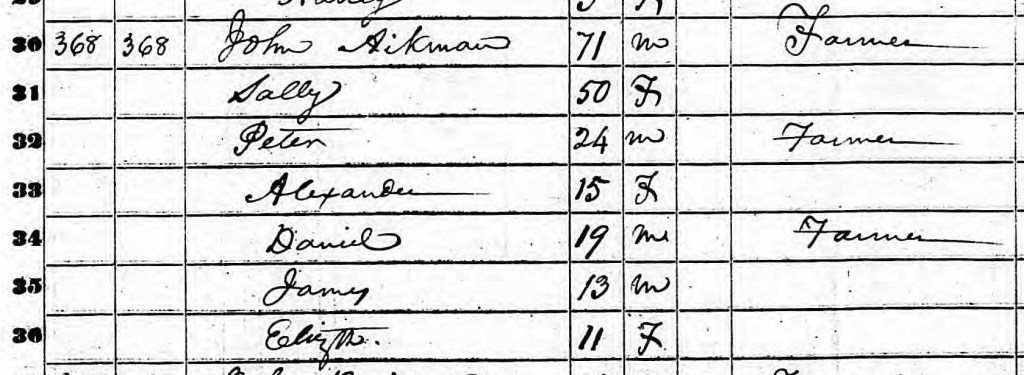 30 368 368 John Aikman 71 m Farmer
31 Sally 50 F
32 Peter 24 m Farmer
33 Alexander 15 F
34 Daniel 19 m Farmer
35 James 13 m
36 11 F